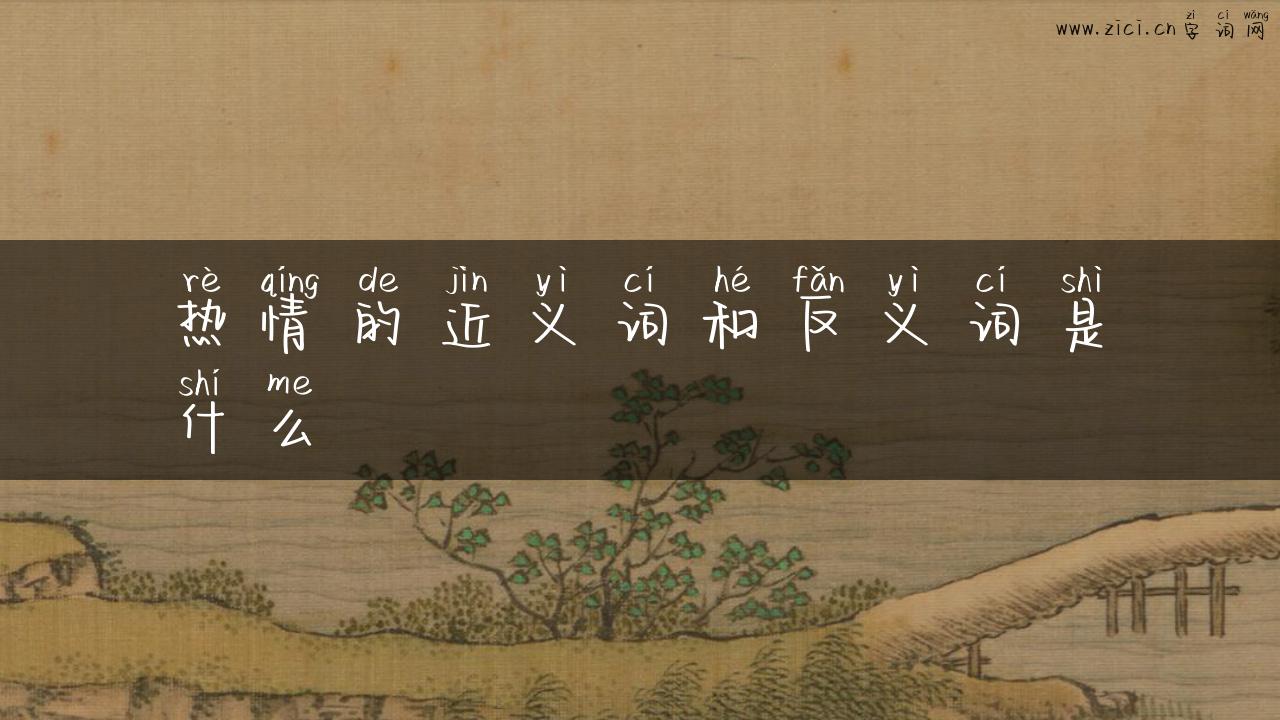 zì cí wǎng
www.zici.cn字词网
rè qíng de jìn yì cí hé fǎn yì cí shì
热情的近义词和反义词是
shí me
什么